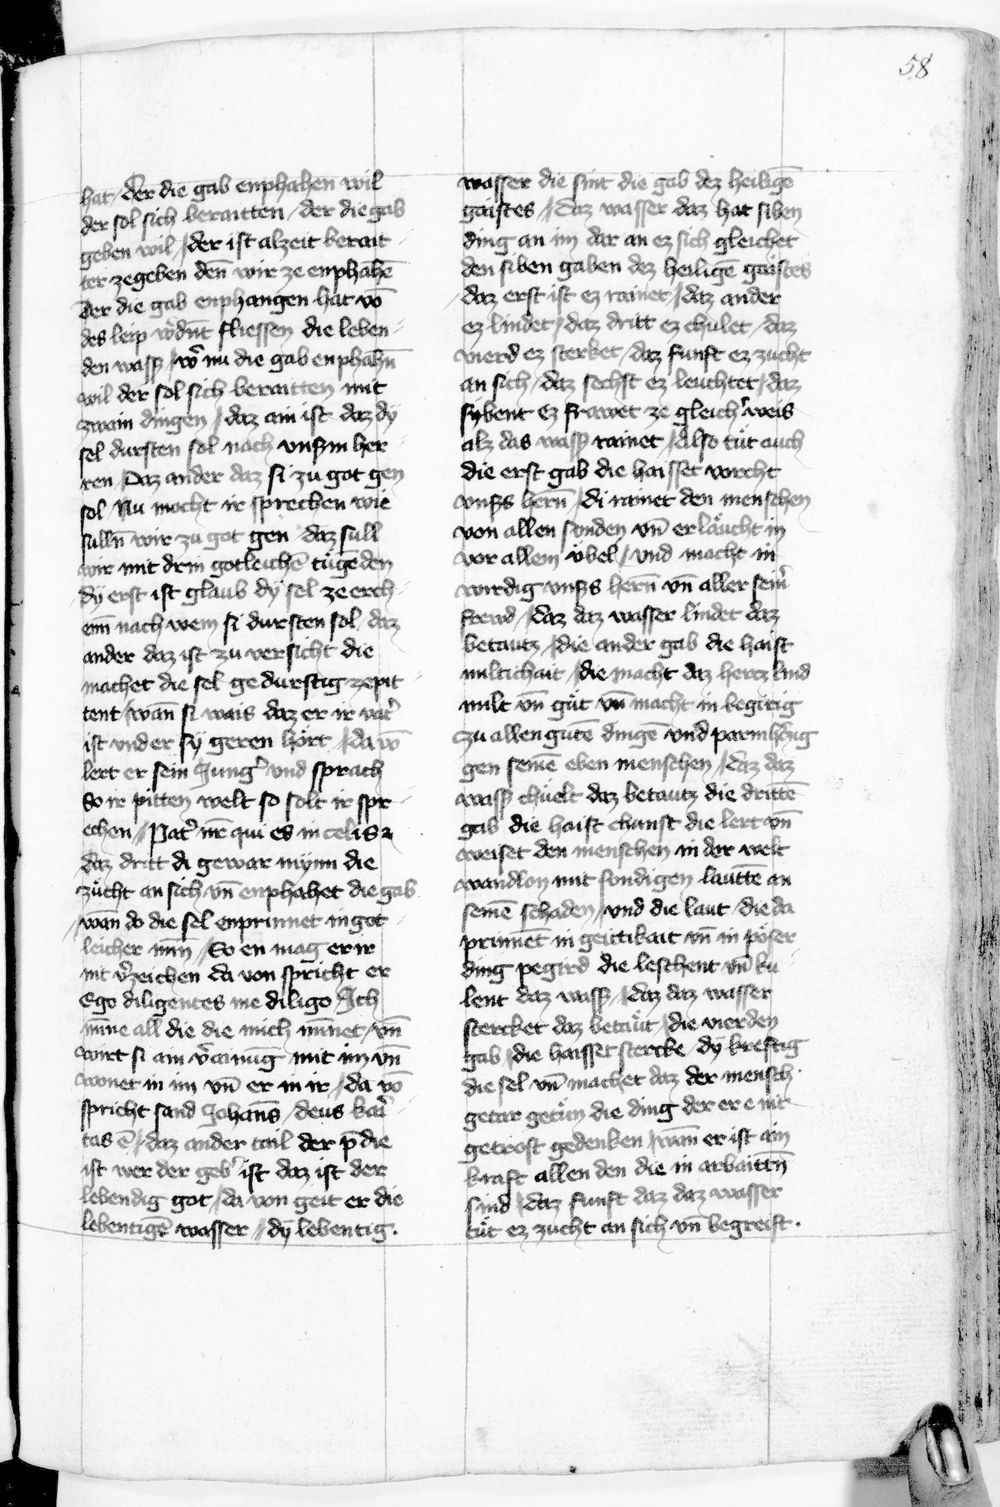 58
hat / Der die gab enphahen wil
der sol sich beraitten / der die gab
geben wil / der ist alzeit berait
ter ze geben den̄ wir ze enphahē
Der die gab enphangen hat vō
des leip w̓dnt fliessen die leben
den wass̓ / w̓ nu die gab enphahn̄
wil der sol sich beraitten mit
zwain dingen / daz ain ist daz dÿ
sel dursten sol nach vns̓m her
ren / Daz ander daz si zu got gen
sol Nu mocht ir sprechen wie
sulln̄ wir zu got gen daz sull
wir mit drin gotleichē tügēden
dÿ erst ist glaub dÿ sel ze erch
enn̄ nach wem si dursten sol / daz
ander daz ist zu versicht die
machet die sel gedurstig ze pit
tent / wan̄ si wais daz er ir vat̓
ist vnd er sÿ geren hört / da vō
lert er sein Jung̓ vnd sprach
So ir pitten welt so solt ir spr
echen / Pat̓ nr̄ qui es in celis ⁊
daz dritt di gewar mÿnn die
zücht an sich vn̄ enphahet die gab
wan̄ do die sel enprinnet in got
leicher min̄ / So en mag er ir
nit v̓zeichen da von spricht er
Ego diligentes me diligo Ich
min̄e all die die mich min̄et / vn̄
wirt si ain v̓ainūg mit im vn̄
wonet in im vn̄ er in ir / da vō
spricht sand Johans̄ / deus kar̓
tas ē / daz ander tail der p̄die
ist wer der geb̓ ist daz ist der
lebendig got / da von geit er die
lebentigē wasser / dÿ lebentig
wasser die sint die gab dez heiligē
gaistes / Daz wasser daz hat siben
ding an im dar an ez sich gleichet
den siben gaben dez heiligē gaistes
daz erst ist ez rainet / daz ander
ez lindet / daz dritt ez chulet / daz
vierd ez sterket / daz funft ez zucht
an sich / daz sechst ez leuchtet / daz
sybent Ez frawet ze gleich̓ weis
alz das wass̓ rainet / Also tüt auch
die erst gab die haisset vorcht
vns̓s hern̄ / di rainet den menschen
von allen sonden vn̄ erläucht in
vor allem übel / vnd macht in
wirdig vns̓s hern̄ vn̄ aller sein̓
frewd / daz daz wasser lindet daz
betautz / die ander gab die haist
miltichait / die macht daz hercz lind
milt vn̄ güt vn̄ macht in begirig
zu allen gutē dingē vnd parmh̓czig
gen seinē eben menschen / daz daz
wass̓ chüelt daz betautz die drittē
gab die haist chunst die lert vn̄
weiset den menschen in der welt
wandlon mit sondigen lauttē an
seinē schaden / vnd die laut / die da
prinnēt in geittikait vn̄ in pöser
ding pegird die leschent vn̄ ku
lent daz wass̓ / daz daz wasser
stercket daz betaüt / die vierden
gab / die haisset stercke / dÿ kreftig
die sel vn̄ machet daz der mensch
getar getün die ding der er e nit
getrost gedenken / wan̄ er ist ain
kraft allen den die in arbaittn̄
sind / daz funft daz daz wasser
tüt ez zucht an sich vn̄ begreift